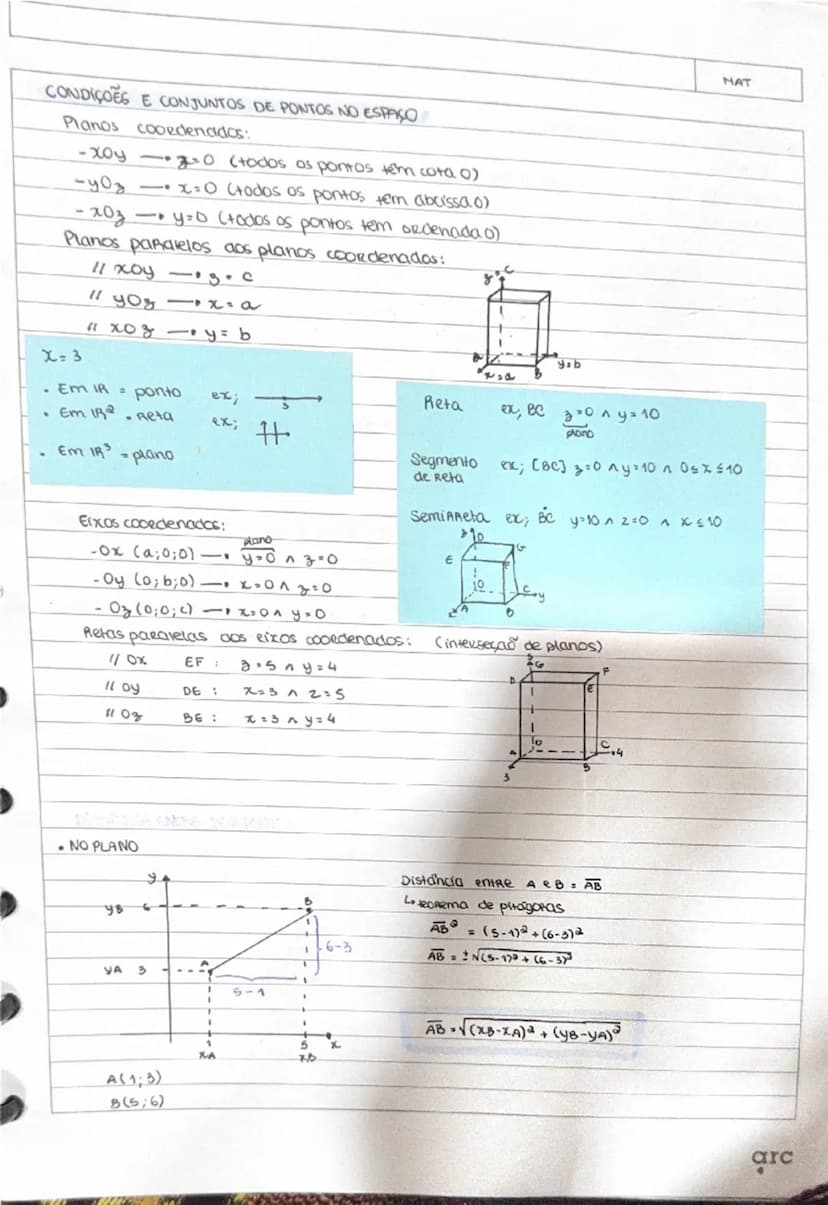 MAT
CONDIÇOẼS E CONJUNTOS DE PONTOS NO ESPAÇO
Planos coordenados:
- xOy → z=0 (todos os pontos têm cota 0)
- yOz → x=0 (todos os pontos têm abcissa 0)
- xOz → y=0 (todos os pontos têm ordenada 0)
Planos paralelos aos planos coordenados:
// xOy → z = c
// yOz → x = a
// xOz → y = b
z=c
A
x=a
B
y=b
x = 3
• Em IR = ponto ex;
3
• Em IR² = reta ex;
• Em IR³ = plano
Reta ex; BC z=0 ∧ y=10
plano
Segmento de reta ex; [BC] z=0 ∧ y=10 ∧ 0≤x≤10
Semirreta ex; ḂC y=10 ∧ z=0 ∧ x≤10
D
E
G
F
O
C
y
A
B
x
Eixos coordenados:
plano
- Ox (a;0;0) → y=0 ∧ z=0
- Oy (0;b;0) → x=0 ∧ z=0
- Oz (0;0;c) → x=0 ∧ y=0
Retas paralelas aos eixos coordenados: (interseção de planos)
// Ox EF : z=5 ∧ y=4
// Oy DE : x=3 ∧ z=5
// Oz BE : x=3 ∧ y=4
5
G
F
D
E
O
A
C
4
B
3
• NO PLANO
y
yB 6
B
6-3
A
yA 3
5-1
1
xA
5
xB
x
A(1;3)
B(5;6)
Distância entre A e B = AB
↳ teorema de pitágoras
AB² = (5-1)² + (6-3)²
AB = ±√(5-1)² + (6-3)²
AB = √(xB-xA)² + (yB-yA)²
arc